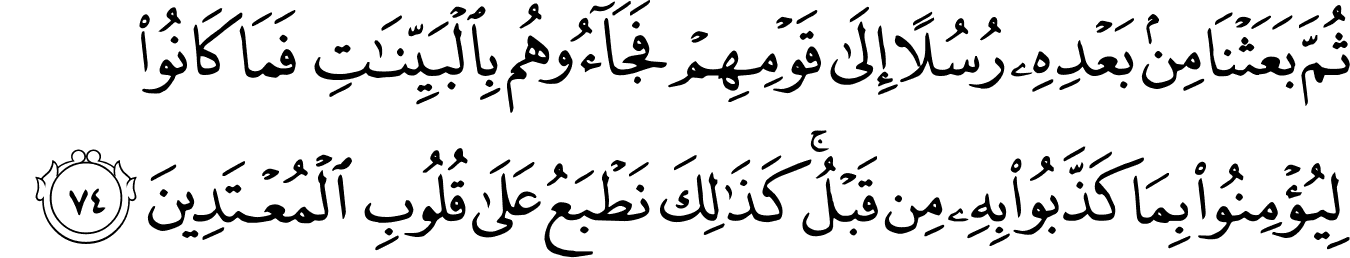 ثُمَّ بَعَثْنَا مِنۢ بَعْدِهِۦ رُسُلًا إِلَىٰ قَوْمِهِمْ فَجَآءُوهُم بِٱلْبَيِّنَـٰتِ فَمَا كَانُوا۟
لِيُؤْمِنُوا۟ بِمَا كَذَّبُوا۟ بِهِۦ مِن قَبْلُ ۚ كَذَٰلِكَ نَطْبَعُ عَلَىٰ قُلُوبِ ٱلْمُعْتَدِينَ ٧٤